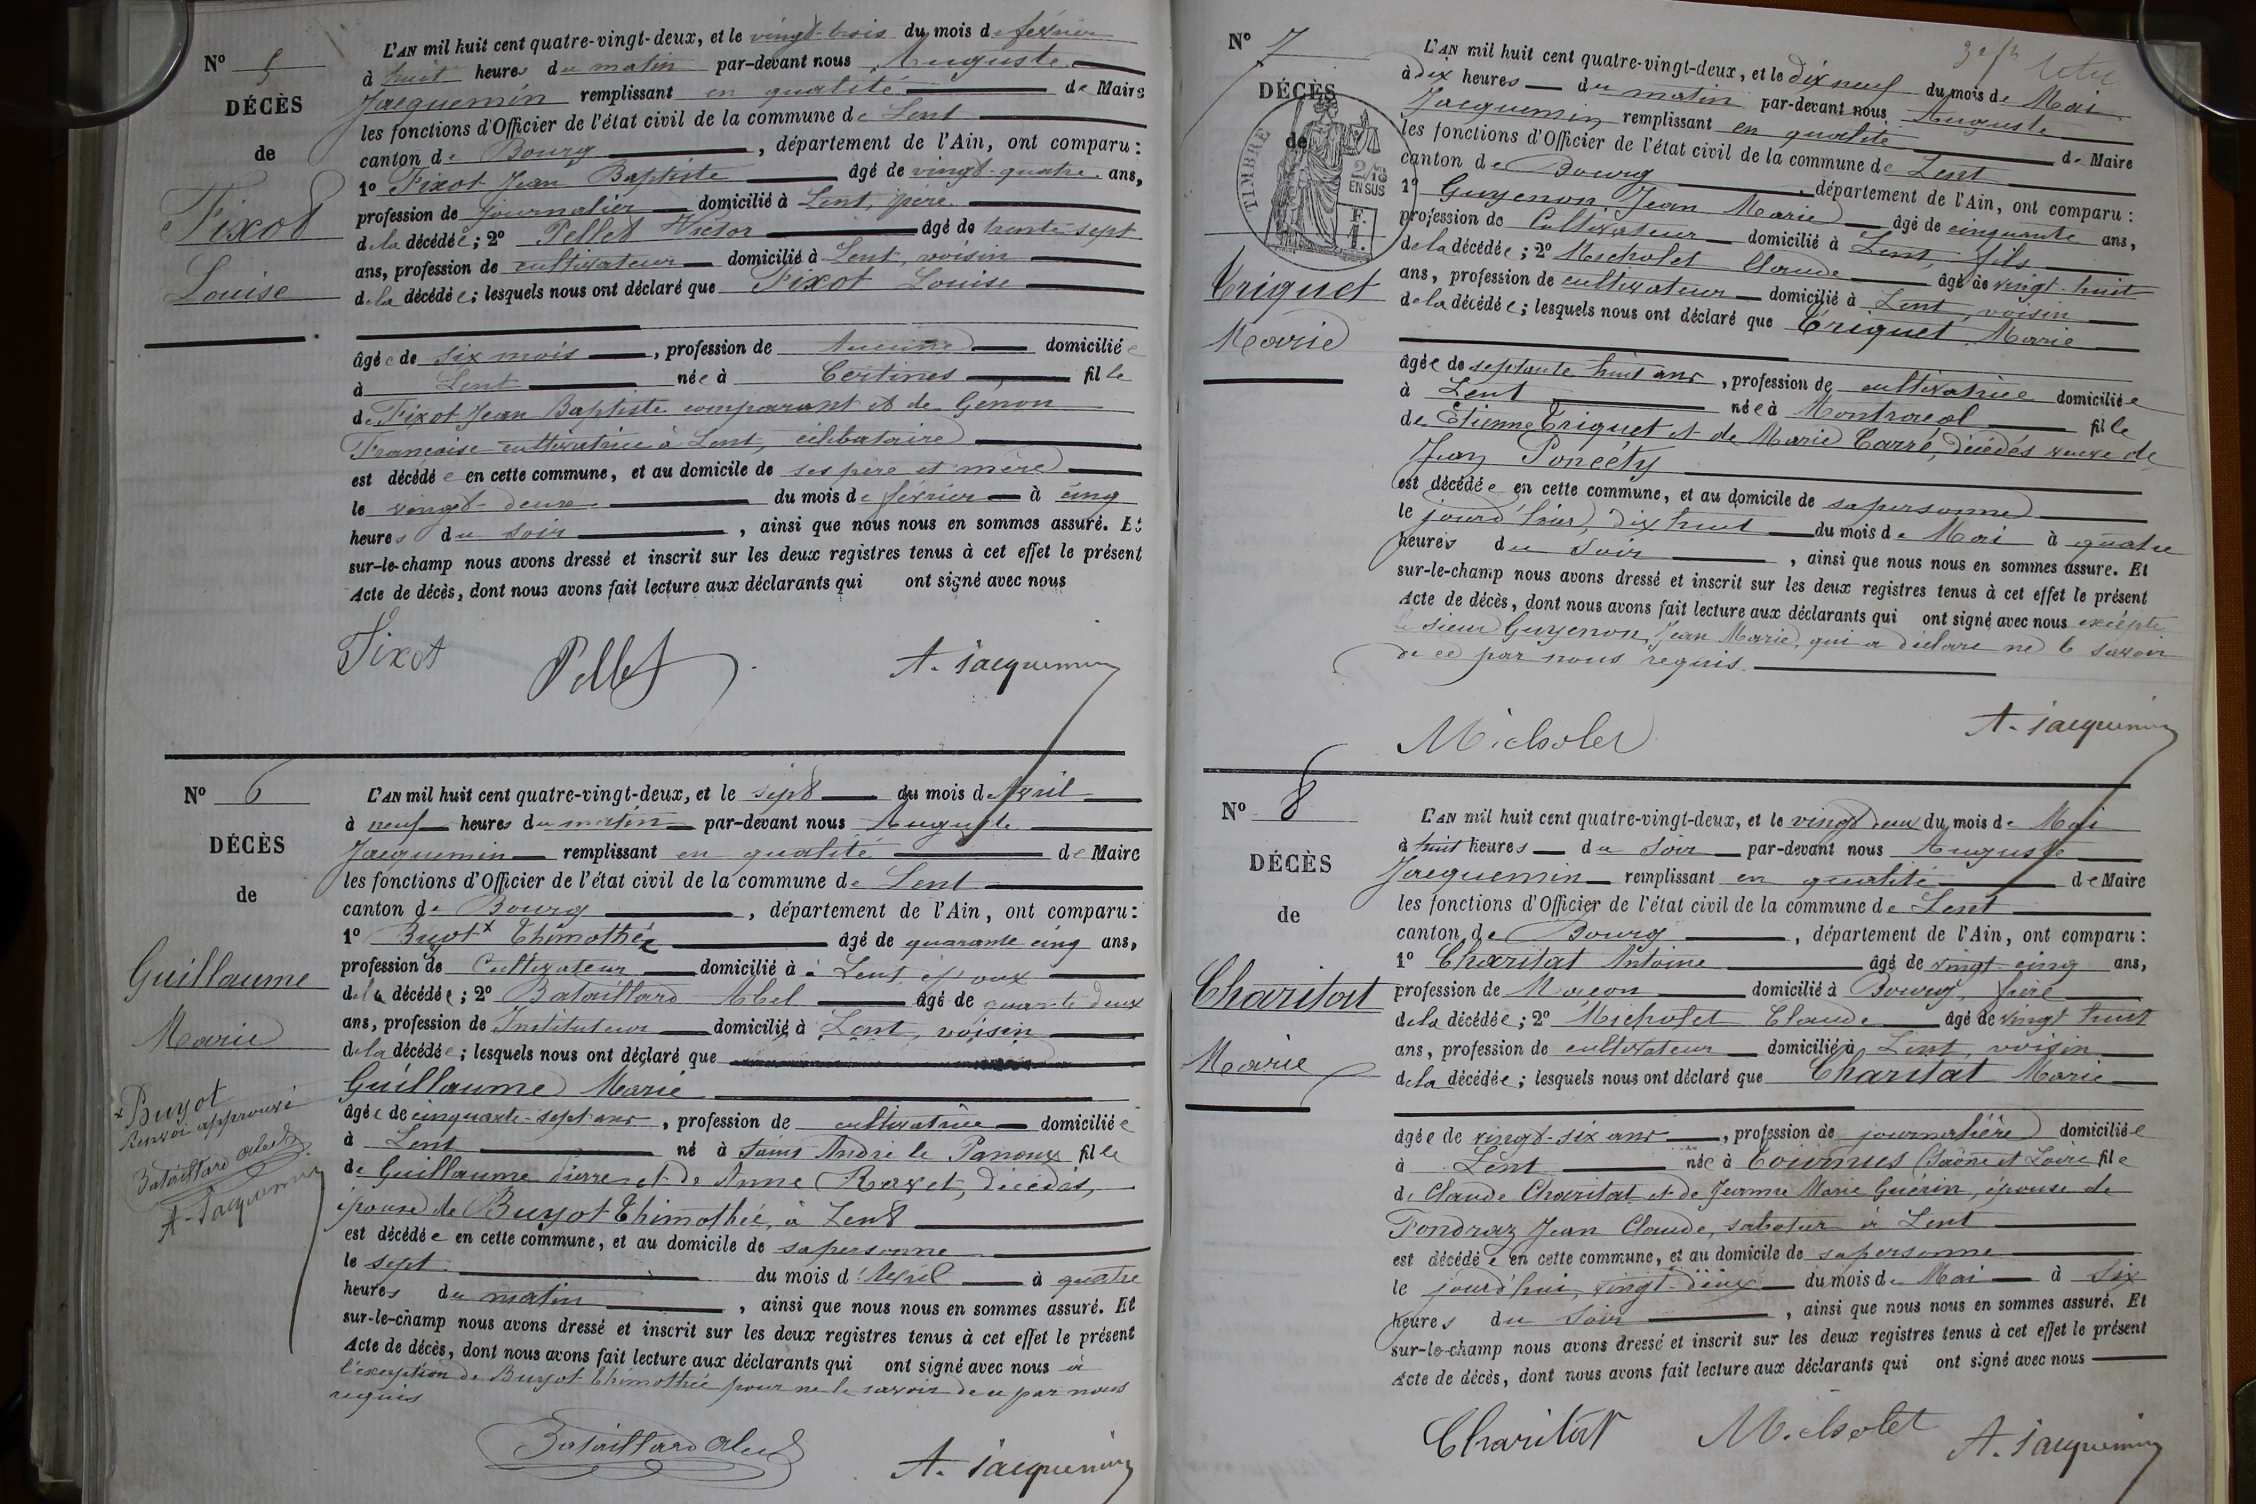 N° 5
DÉCÈS
de
Fixot
Louise
L'AN mil huit cent quatre-vingt-deux, et le vingt-trois du mois de février
à huit heures du matin par-devant nous Auguste
Jacquemin remplissant en qualité de Maire
les fonctions d'Officier de l'état civil de la commune de Lent
canton de Bourg, département de l'Ain, ont comparu :
1° Fixot Jean Baptiste âgé de vingt-quatre ans,
profession de journalier domicilié à Lent, père
de la décédée ; 2° Pellet Victor âgé de trente-sept
ans, profession de cultivateur domicilié à Lent, voisin
de la décédée ; lesquels nous ont déclaré que Fixot Louise
âgée de six mois, profession de Aucune domiciliée
à Lent née à Certines fille
de Fixot Jean Baptiste comparant et de Genon
Francoise cultivatrice à Lent, célibataire
est décédée en cette commune, et au domicile de ses père et mère
le vingt-deux du mois de février à cinq
heures du soir, ainsi que nous nous en sommes assuré. Et
sur-le-champ nous avons dressé et inscrit sur les deux registres tenus à cet effet le présent
Acte de décès, dont nous avons fait lecture aux déclarants qui ont signé avec nous
Fixot Pellet A. Jacquemin
N° 6
DÉCÈS
de
Guillaume
Marie
x Buyot
Renvoi approuvé
Bataillard Abel
A. Jacquemin
L'AN mil huit cent quatre-vingt-deux, et le sept du mois d'Avril
à neuf heures du matin par-devant nous Auguste
Jacquemin remplissant en qualité de Maire
les fonctions d'Officier de l'état civil de la commune de Lent
canton de Bourg, département de l'Ain, ont comparu :
1° Buyot x Thimothée âgé de quarante cinq ans,
profession de Cultivateur domicilié à à Lent, époux
de la décédée ; 2° Bataillard Abel âgé de quarante deux
ans, profession de Instituteur domicilié à Lent, voisin
de la décédée ; lesquels nous ont déclaré que
Guillaume Marie
âgée de cinquante-sept ans, profession de cultivatrice domiciliée
à Lent né à Saint André le Panoux fille
de Guillaume Pierre et de Anne Ravet, décédés,
épouse de Buyot Thimothée, à Lent
est décédée en cette commune, et au domicile de sa personne
le sept du mois d'Avril à quatre
heures du matin, ainsi que nous nous en sommes assuré. Et
sur-le-champ nous avons dressé et inscrit sur les deux registres tenus à cet effet le présent
Acte de décès, dont nous avons fait lecture aux déclarants qui ont signé avec nous à
l'exception de Buyot Thimothée pour ne le savoir de ce par nous
requis
Bataillard Abel A. Jacquemin
N° 7
DÉCÈS
de
TIMBRE
2/10
EN SUS
F.
1.
Triquet
Marie
L'AN mil huit cent quatre-vingt-deux, et le dix neuf du mois de Mai
à dix heures du matin par-devant nous Auguste
Jacquemin remplissant en qualité de Maire
les fonctions d'Officier de l'état civil de la commune de Lent
canton de Bourg, département de l'Ain, ont comparu :
1° Guyenon, Jean Marie âgé de cinquante ans,
profession de Cultivateur domicilié à Lent, fils
de la décédée ; 2° Micholet Claude âgé de vingt-huit
ans, profession de cultivateur domicilié à Lent, voisin
de la décédée ; lesquels nous ont déclaré que Triquet Marie
âgée de septante huit ans, profession de cultivatrice domiciliée
à Lent née à Montracol fille
de Etienne Triquet et de Marie Carré, décédés veuve de
Jean Poncéty
est décédée en cette commune, et au domicile de sa personne
le jourd'hier, dix huit du mois de Mai à quatre
heures du soir, ainsi que nous nous en sommes assuré. Et
sur-le-champ nous avons dressé et inscrit sur les deux registres tenus à cet effet le présent
Acte de décès, dont nous avons fait lecture aux déclarants qui ont signé avec nous excépté
le sieur Guyenon, Jean Marie, qui a déclaré ne le savoir
de ce par nous requis.
Micholet A. Jacquemin
N° 8
DÉCÈS
de
Charitat
Marie
L'AN mil huit cent quatre-vingt-deux, et le vingt deux du mois de Mai
à huit heures du soir par-devant nous Auguste
Jacquemin remplissant en qualité de Maire
les fonctions d'Officier de l'état civil de la commune de Lent
canton de Bourg, département de l'Ain, ont comparu :
1° Charitat Antoine âgé de vingt-cinq ans,
profession de Maçon domicilié à Bourg, frère
de la décédée ; 2° Micholet Claude âgé de vingt huit
ans, profession de cultivateur domicilié à Lent, voisin
de la décédée ; lesquels nous ont déclaré que Charitat Marie
âgée de vingt-six ans, profession de journalière domiciliée
à Lent née à Tournus (Saône et Loire file
de Claude Charitat et de Jeanne Marie Guérin, épouse de
Fondraz Jean Claude, sabotier à Lent
est décédée en cette commune, et au domicile de sa personne
le jourd'hui, vingt-deux du mois de Mai à six
heures du soir, ainsi que nous nous en sommes assuré. Et
sur-le-champ nous avons dressé et inscrit sur les deux registres tenus à cet effet le présent
Acte de décès, dont nous avons fait lecture aux déclarants qui ont signé avec nous
Charitat Micholet A. Jacquemin